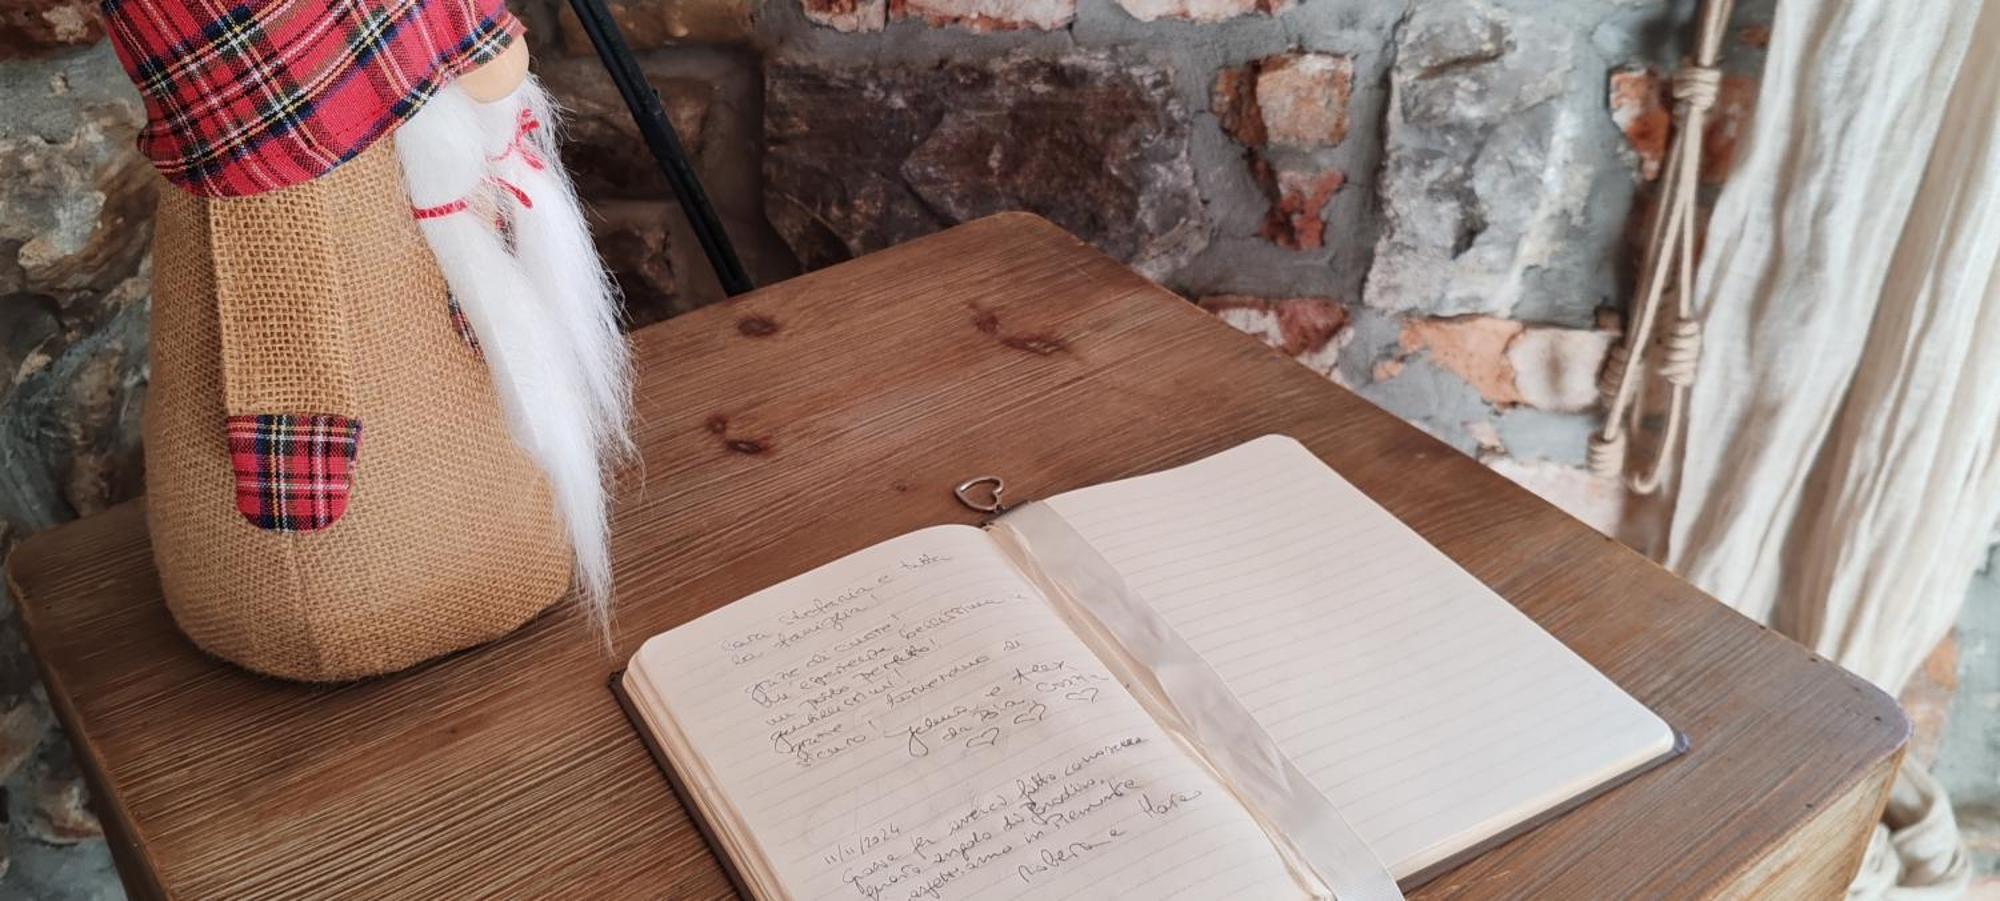 Cara Stefania e tutta
la famiglia!
grazie di cuore!
Un'esperienza bellissima e
un posto perfetto!
gentilissimi!
grazie! Torneremo di
sicuro! Jelena e Alex
da Bia
11/11/2024
Grazie per averci fatto conoscere
questo angolo di Paradiso,
aspettiamo in Piemonte
Roberta e Marco